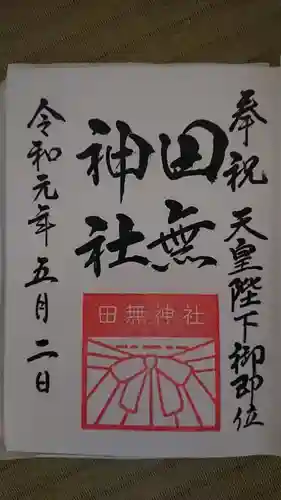 奉祝 天皇陛下御即位
田無
神社
田無神社
令和元年 五月二日